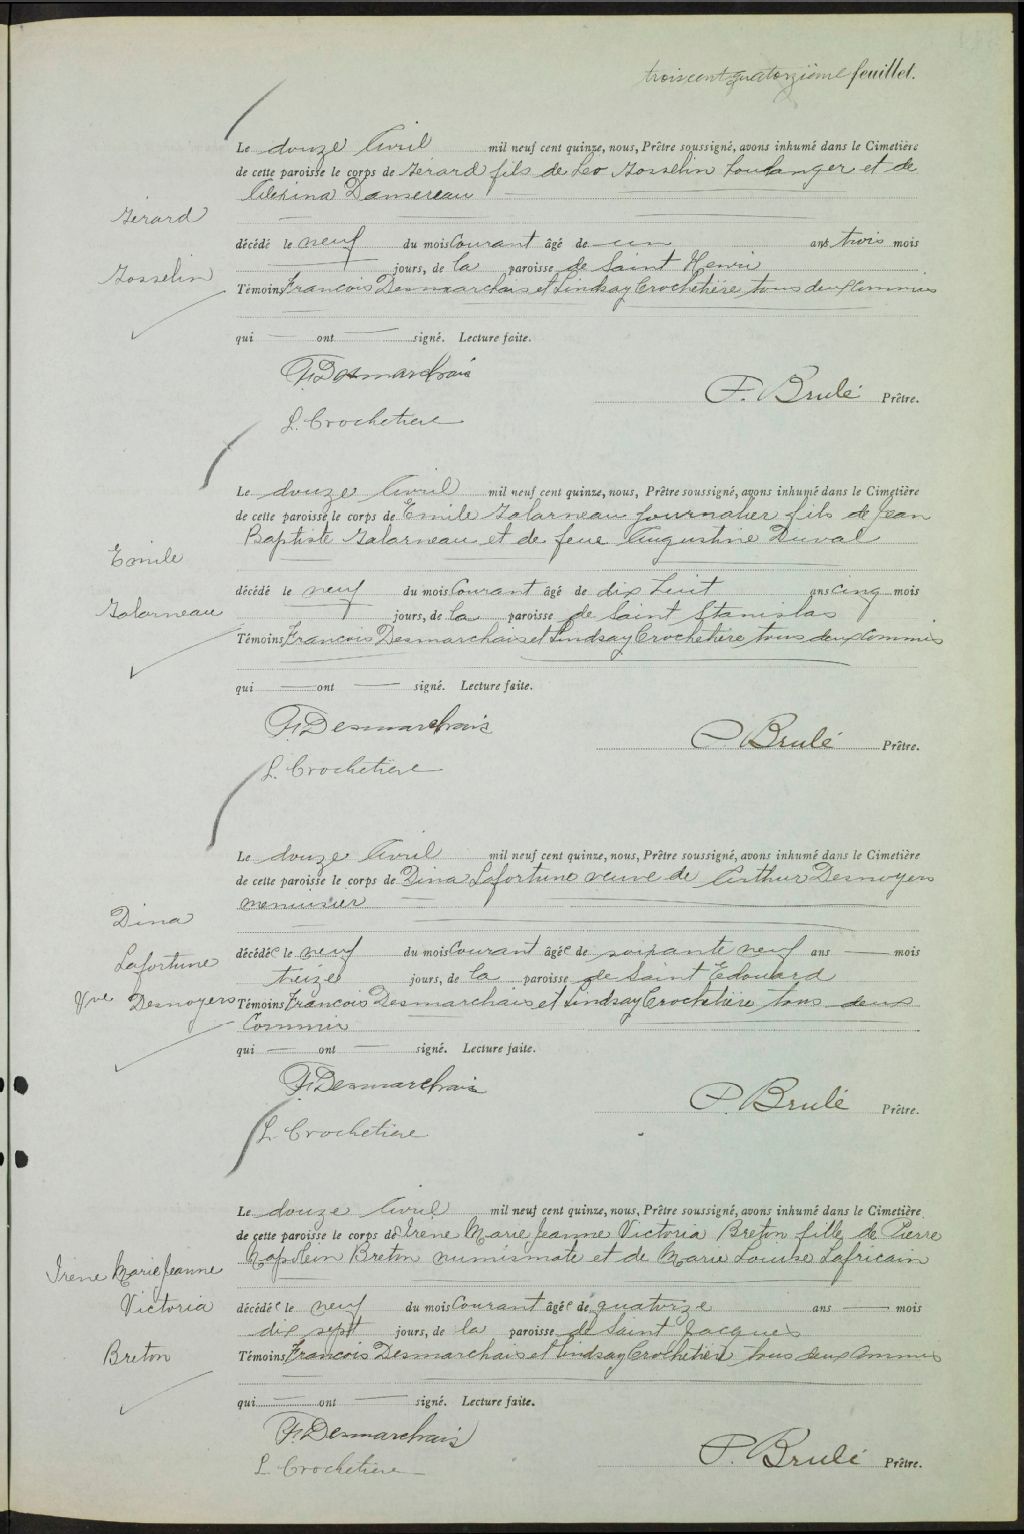 trois cent quatorzième feuillet.
Le douze Avril mil neuf cent quinze, nous, Prêtre soussigné, avons inhumé dans le Cimetière
de cette paroisse le corps de Gérard fils de Leo Gosselin boulanger et de
Alexina Dansereau
Gérard
décédé le neuf du mois Courant âgé de un ans trois mois
jours, de la paroisse de Saint Henri
Gosselin
Témoins Francois Desmarchais et Lindsay Crochetière tous deux Commis
qui ont signé. Lecture faite.
F. Desmarchais
F. Brulé Prêtre.
L. Crochetiere
Le douze Avril mil neuf cent quinze, nous, Prêtre soussigné, avons inhumé dans le Cimetière
de cette paroisse le corps de Emile Galarneau journalier fils de Jean
Baptiste Galarneau et de feue Augustine Duval
Emile
décédé le neuf du mois Courant âgé de dix huit ans cinq mois
Galarneau
jours, de la paroisse de Saint Stanislas
Témoins Francois Desmarchais et Lindsay Crochetière tous deux Commis
qui ont signé. Lecture faite.
F. Desmarchais
P. Brulé Prêtre.
L. Crochetiere
Le douze Avril mil neuf cent quinze, nous, Prêtre soussigné, avons inhumé dans le Cimetière
de cette paroisse le corps de Dina Lafortune veuve de Arthur Desnoyers
menuisier
Dina
décédée le neuf du mois Courant âgée de soixante neuf ans mois
Lafortune
treize jours, de la paroisse de Saint Edouard
Vve Desnoyers
Témoins Francois Desmarchais et Lindsay Crochetière tous deux
Commis
qui ont signé. Lecture faite.
F. Desmarchais
P. Brulé Prêtre.
L. Crochetiere
Le douze Avril mil neuf cent quinze, nous, Prêtre soussigné, avons inhumé dans le Cimetière
de cette paroisse le corps de Irène Marie Jeanne Victoria Breton fille de Pierre
Napoléon Breton numismate et de Marie Louise Lafricain
Irene Marie Jeanne
Victoria
décédée le neuf du mois Courant âgée de quatorze ans mois
dix sept jours, de la paroisse de Saint Jacques
Breton
Témoins Francois Desmarchais et Lindsay Crochetière tous deux Commis
qui ont signé. Lecture faite.
F. Desmarchais
P. Brulé Prêtre.
L. Crochetiere